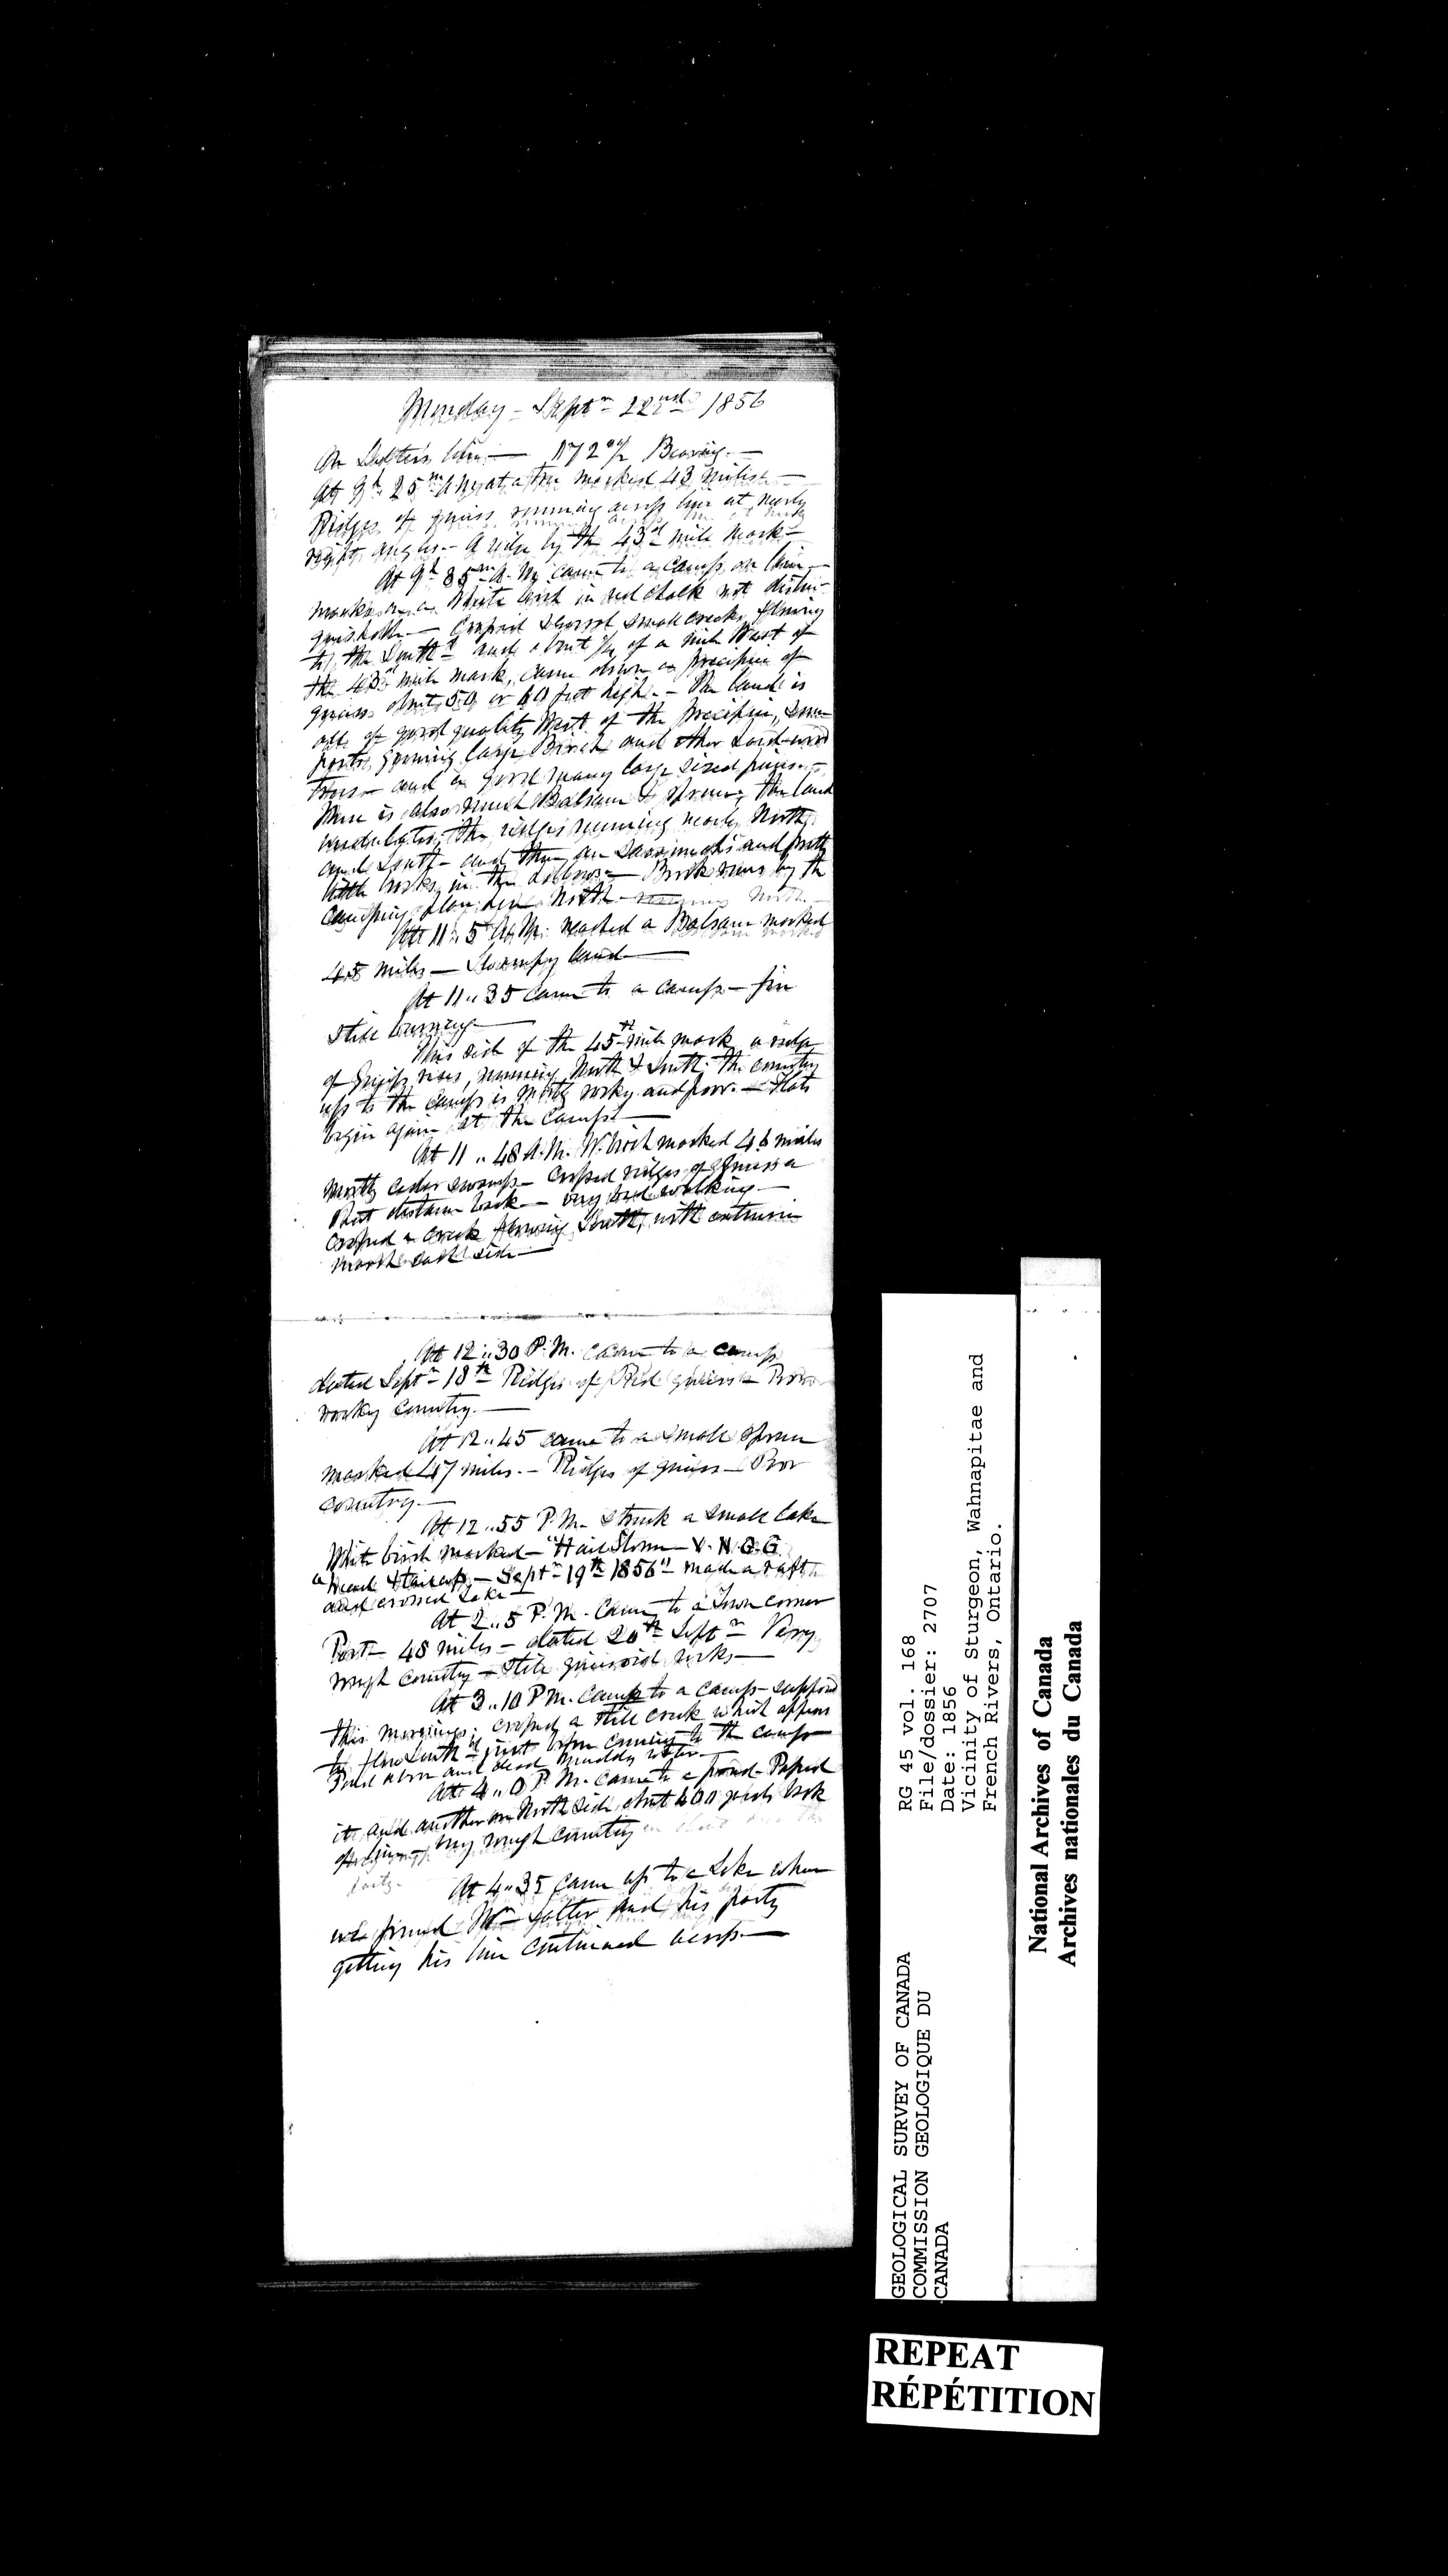 Monday - Septr 22nd 1856
On Salter's line —  Bearing. —
At 9h 25m A.M. at a tree marked 43 miles. —
Ridges of gneiss running across line at nearly
right angles. - A ridge by the 43d mile mark -
At 9h 35m A.M. came to a camp on line —
marks on a White birch in red chalk not distin-
guishable. — Crossed several small creeks flowing
to the South and about ½ of a mile West of
the 43d mile mark, came down a precipice of
gneiss about 50 or 60 feet high. - The land is
all of good quality West of the precipice, some
parts growing large Birch and other hard-wood
trees — and a good many large sized pines. —
There is also much Balsam & spruce; the land
undulates, the ridges running nearly North
and South - and there are and
little brooks in the hollows — Brook runs by the
camping place North
At 11..5 A.M. reached a Balsam marked
45 miles — Swampy land —
At 11..35 came to a camp — fire
still burning —
This side of the 45th mile mark a ridge
of Gneiss rises, running North & South; the country
up to the camp is mostly rocky and poor. — Flats
begin again at the camp —
At 11..48 A.M. W. birch marked 46 miles
mostly cedar swamp — Crossed ridges of gneiss a
short distance back — very bad walking —
Crossed a creek flowing South, with extensive
marsh east side —
At 12..30 P.M. came to a camp
dated Septr 18th Ridges of Red gneiss — Poor
rocky country. —
At 12..45 came to a small spruce
marked 47 miles. — Ridges of gneiss — Poor
country. —
At 12..55 P.M. struck a small lake
White birch marked — "Hail Storm — V. N. G.G.
— Septr 19th 1856" made a raft
and crossed Lake —
At 2..5 P.M. Came to a Town corner
Post — 48 miles — dated 20th Septr Very
rough country — still gneissoid rocks —
At 3..10 P.M. Came to a camp — supposed
this morning's; crossed a still creek which appears
to flow South — just before coming to the camp
Pond above and dead muddy water. —
At 4..0 P.M. came to a pond - Passed
it, and another on North side about 400 yards back
— very rough country
At 4..35 came up to a Lake where
we found Mr Salter and his party
getting his line continued across. —
GEOLOGICAL SURVEY OF CANADA
COMMISSION GEOLOGIQUE DU
CANADA
RG 45 vol. 168
File/dossier: 2707
Date: 1856
Vicinity of Sturgeon, Wahnapitae and
French Rivers, Ontario.
National Archives of Canada
Archives nationales du Canada
REPEAT
RÉPÉTITION